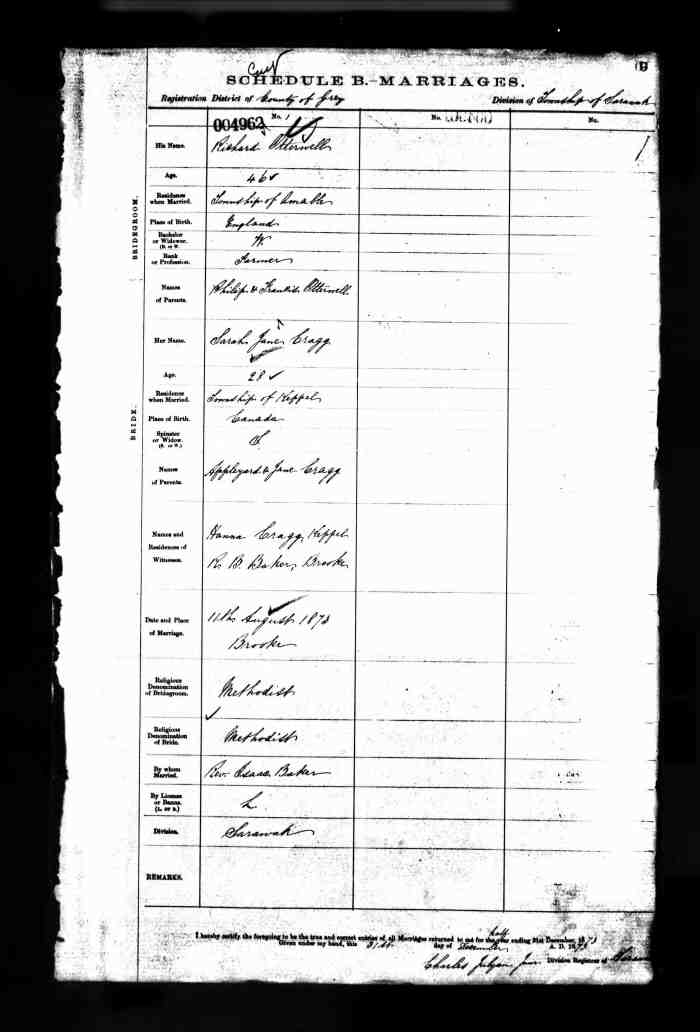 SCHEDULE B.—MARRIAGES.
Registration District of County of Grey Division of Township of Sarawak
004962 No. 1 No. No.
BRIDEGROOM.
His Name. Richard Otterwell
Age. 46
Residence when Married. Township of Amable
Place of Birth. England
Bachelor or Widower. (B. or W.) W
Rank or Profession. Farmer
Names of Parents. Philip & Otterwell
BRIDE.
Her Name. Sarah Jane Cragg
Age. 28
Residence when Married. Township of Keppel
Place of Birth. Canada
Spinster or Widow. (S. or W.) S
Names of Parents. Appleyard & Jane Cragg
Names and Residences of Witnesses. Hanna Cragg, Keppel
R. B. Baker, Brooke
Date and Place of Marriage. 11th August 1873
Brooke
Religious Denomination of Bridegroom. Methodist
Religious Denomination of Bride. Methodist
By whom Married. Rev. Isaac Baker
By License or Banns. (L. or B.) L
Division. Sarawak
REMARKS.
half
I hereby certify the foregoing to be the true and correct entries of all Marriages returned to me for the year ending 31st December, 1873
Given under my hand, this 31st day of December A. D. 1873
Charles Julyan Junr Division Registrar of